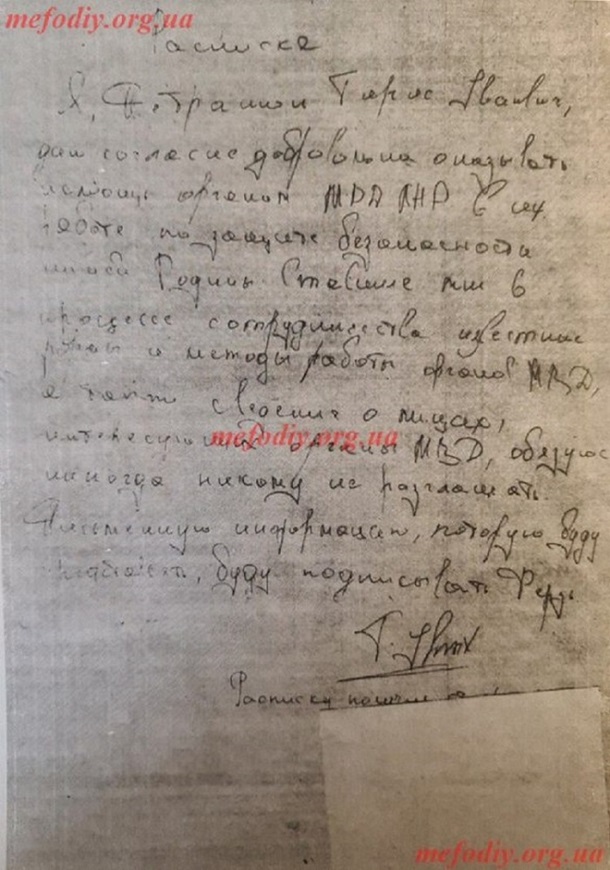 mefodiy.org.ua
Расписка
Я, Тарас Иванович,
даю согласие добровольно оказывать
помощь органам МВД в их
работе по защите безопасности
нашей Родины. Ставшие мне в
процессе сотрудничества известные
и методы работы органов МВД,
а также сведения о лицах,
интересующих органы МВД, обязуюсь
никогда никому не разглашать.
mefodiy.org.ua
Письменную информацию, которую буду
буду подписывать
Расписку
mefodiy.org.ua